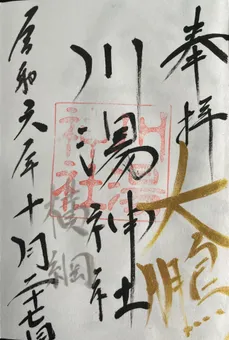 奉拝
大鵬
川湯神社
川湯神社
横綱
令和六年十月二十七日